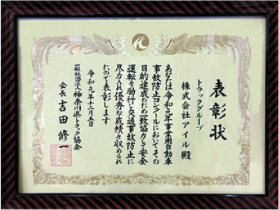 表彰状
トラックグループ
株式会社アイル殿
あなたは令和元年事業用自動車
事故防止コンクールにおいてその
目的達成のため一致協力して安全
運転を励行し交通事故防止に
尽力され優秀な成績を収められ
たので表彰します
令和元年十二月五日
一般社団法人神奈川県トラック協会
会長 吉田修一